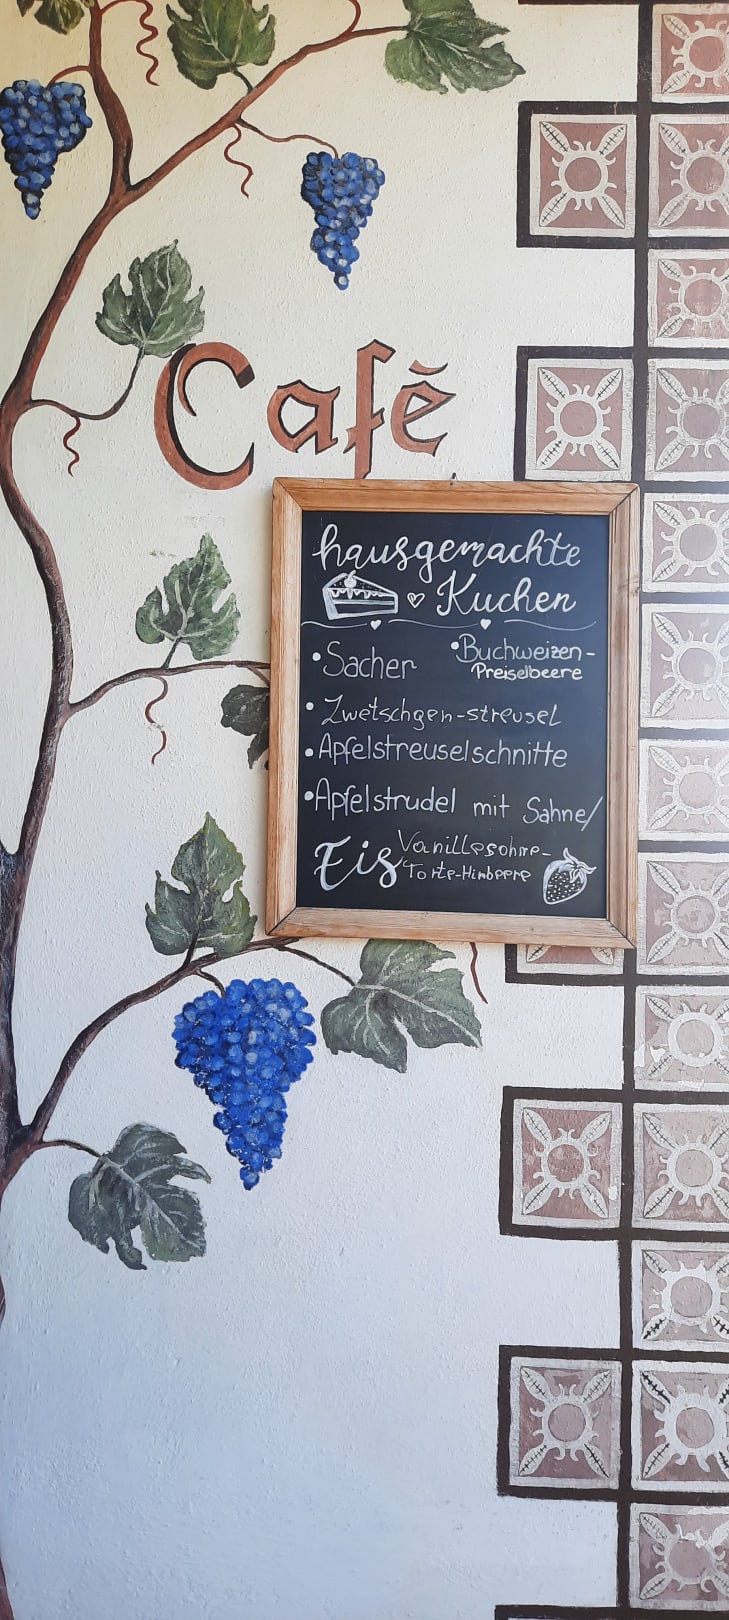 Café
hausgemachte
Kuchen
•Sacher
•Buchweizen-
Preiselbeere
• Zwetschgen-streusel
•Apfelstreuselschnitte
•Apfelstrudel mit Sahne/
Eis
Vanillesahne-
Torte-Himbeere